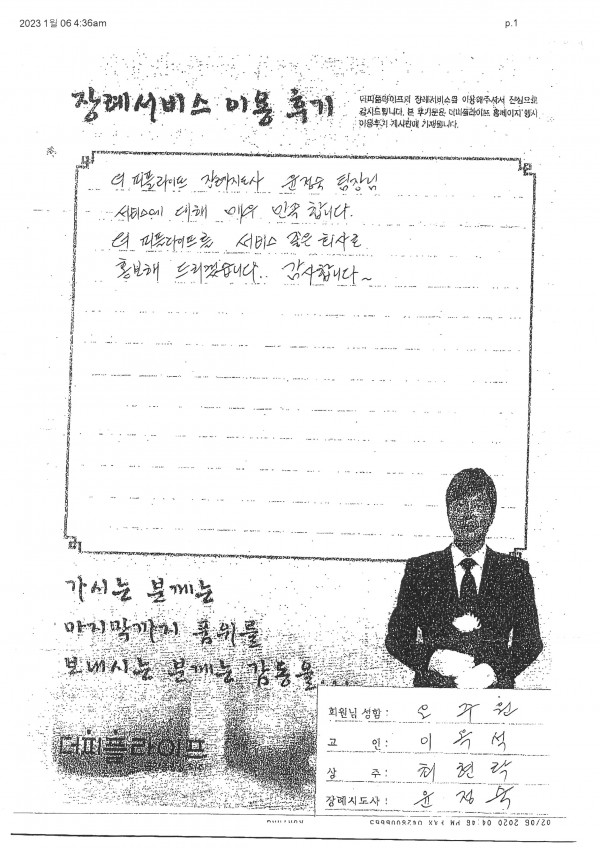 2023 1월 06 4:36am
p.1
장례서비스 이용 후기
더피플라이프의 장례서비스를 이용해주셔서 진심으로
감사드립니다. 본 후기문은 더피플라이프 홈페이지 행사
이용후기 게시판에 기재됩니다.
더 피플라이프 장례지도사 윤정숙 팀장님
서비스에 대해 매우 만족 합니다.
더 피플라이프를 서비스 좋은 회사로
홍보해 드리겠습니다. 감사합니다~
가시는 분께는
마지막까지 품위를
보내시는 분께는 감동을....
더피플라이프
회원님 성함 :
고 인 : 이 옥 석
상 주 : 최 현 락
장례지도사 : 윤 정 숙
02/06 2020 04:46 PM